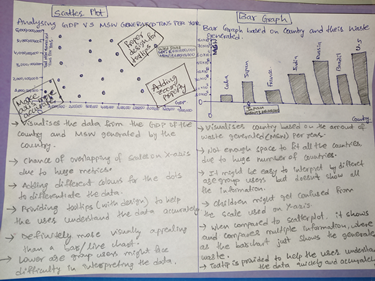 Scatter Plot
Analysing GDP V S MSW GENERATED TONS PER YEAR
Repon design for tooltip
Adding
GDP
Make
→ Visualises the data from the GDP of the
country and MSW generated by the
country.
→ Chance of overlapping of scales on x-axis
due to huge metrics
→ Adding different colour for the dots
to differentiate the data.
→ Providing tooltips (with design) to help
the users understand the data accurately
→ Definitely more visually appealing
than a bar/line chart.
→ Lower age group users might face
difficulty in interpreting the data.
Bar Graph
Bar Graph based on Country and their Waste
generated.
MSW
Cuba
Japan
France
India
Russia
Country
→ Visualises country based on the amount of
waste generated (MSW) per year.
→ Not enough space to fit all the countries
due to huge number of countries.
→ It might be easy to interpret by different
age group users but doesn't show all
the information.
→ Children might get confused from
the scale used for x-axis.
→ When compared to scatterplot, it shows
and compares multiple information, where
as the barchart just shows the generated
waste.
→ Tooltip is provided to help the users understand
the data quickly and accurately